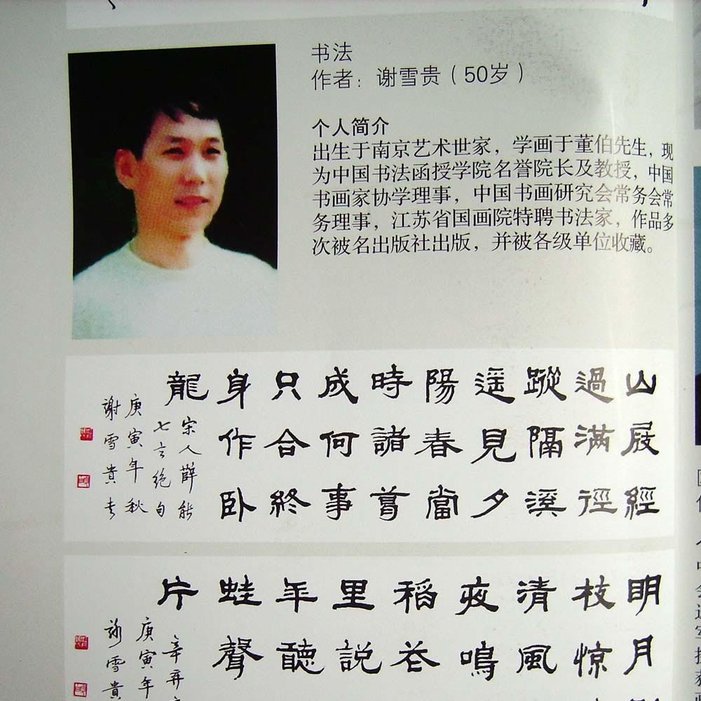 书法
作者：谢雪贵（50岁）
个人简介
出生于南京艺术世家，学画于董伯先生，现
为中国书法函授学院名誉院长及教授，中国
书画家协学理事，中国书画研究会常务会常
务理事，江苏省国画院特聘书法家，作品多
次被名出版社出版，并被各级单位收藏。
山屐經
過滿徑
蹤隔溪
遥見夕
陽春當
時諸葛
成何事
只合終
身作卧
龍
宋人薛能
七言绝句
庚寅年秋
謝雪貴书
明月
枝惊
清風
夜鳴
稻花
里説
年聽
蛙聲
片
辛弃
庚寅年
謝雪貴